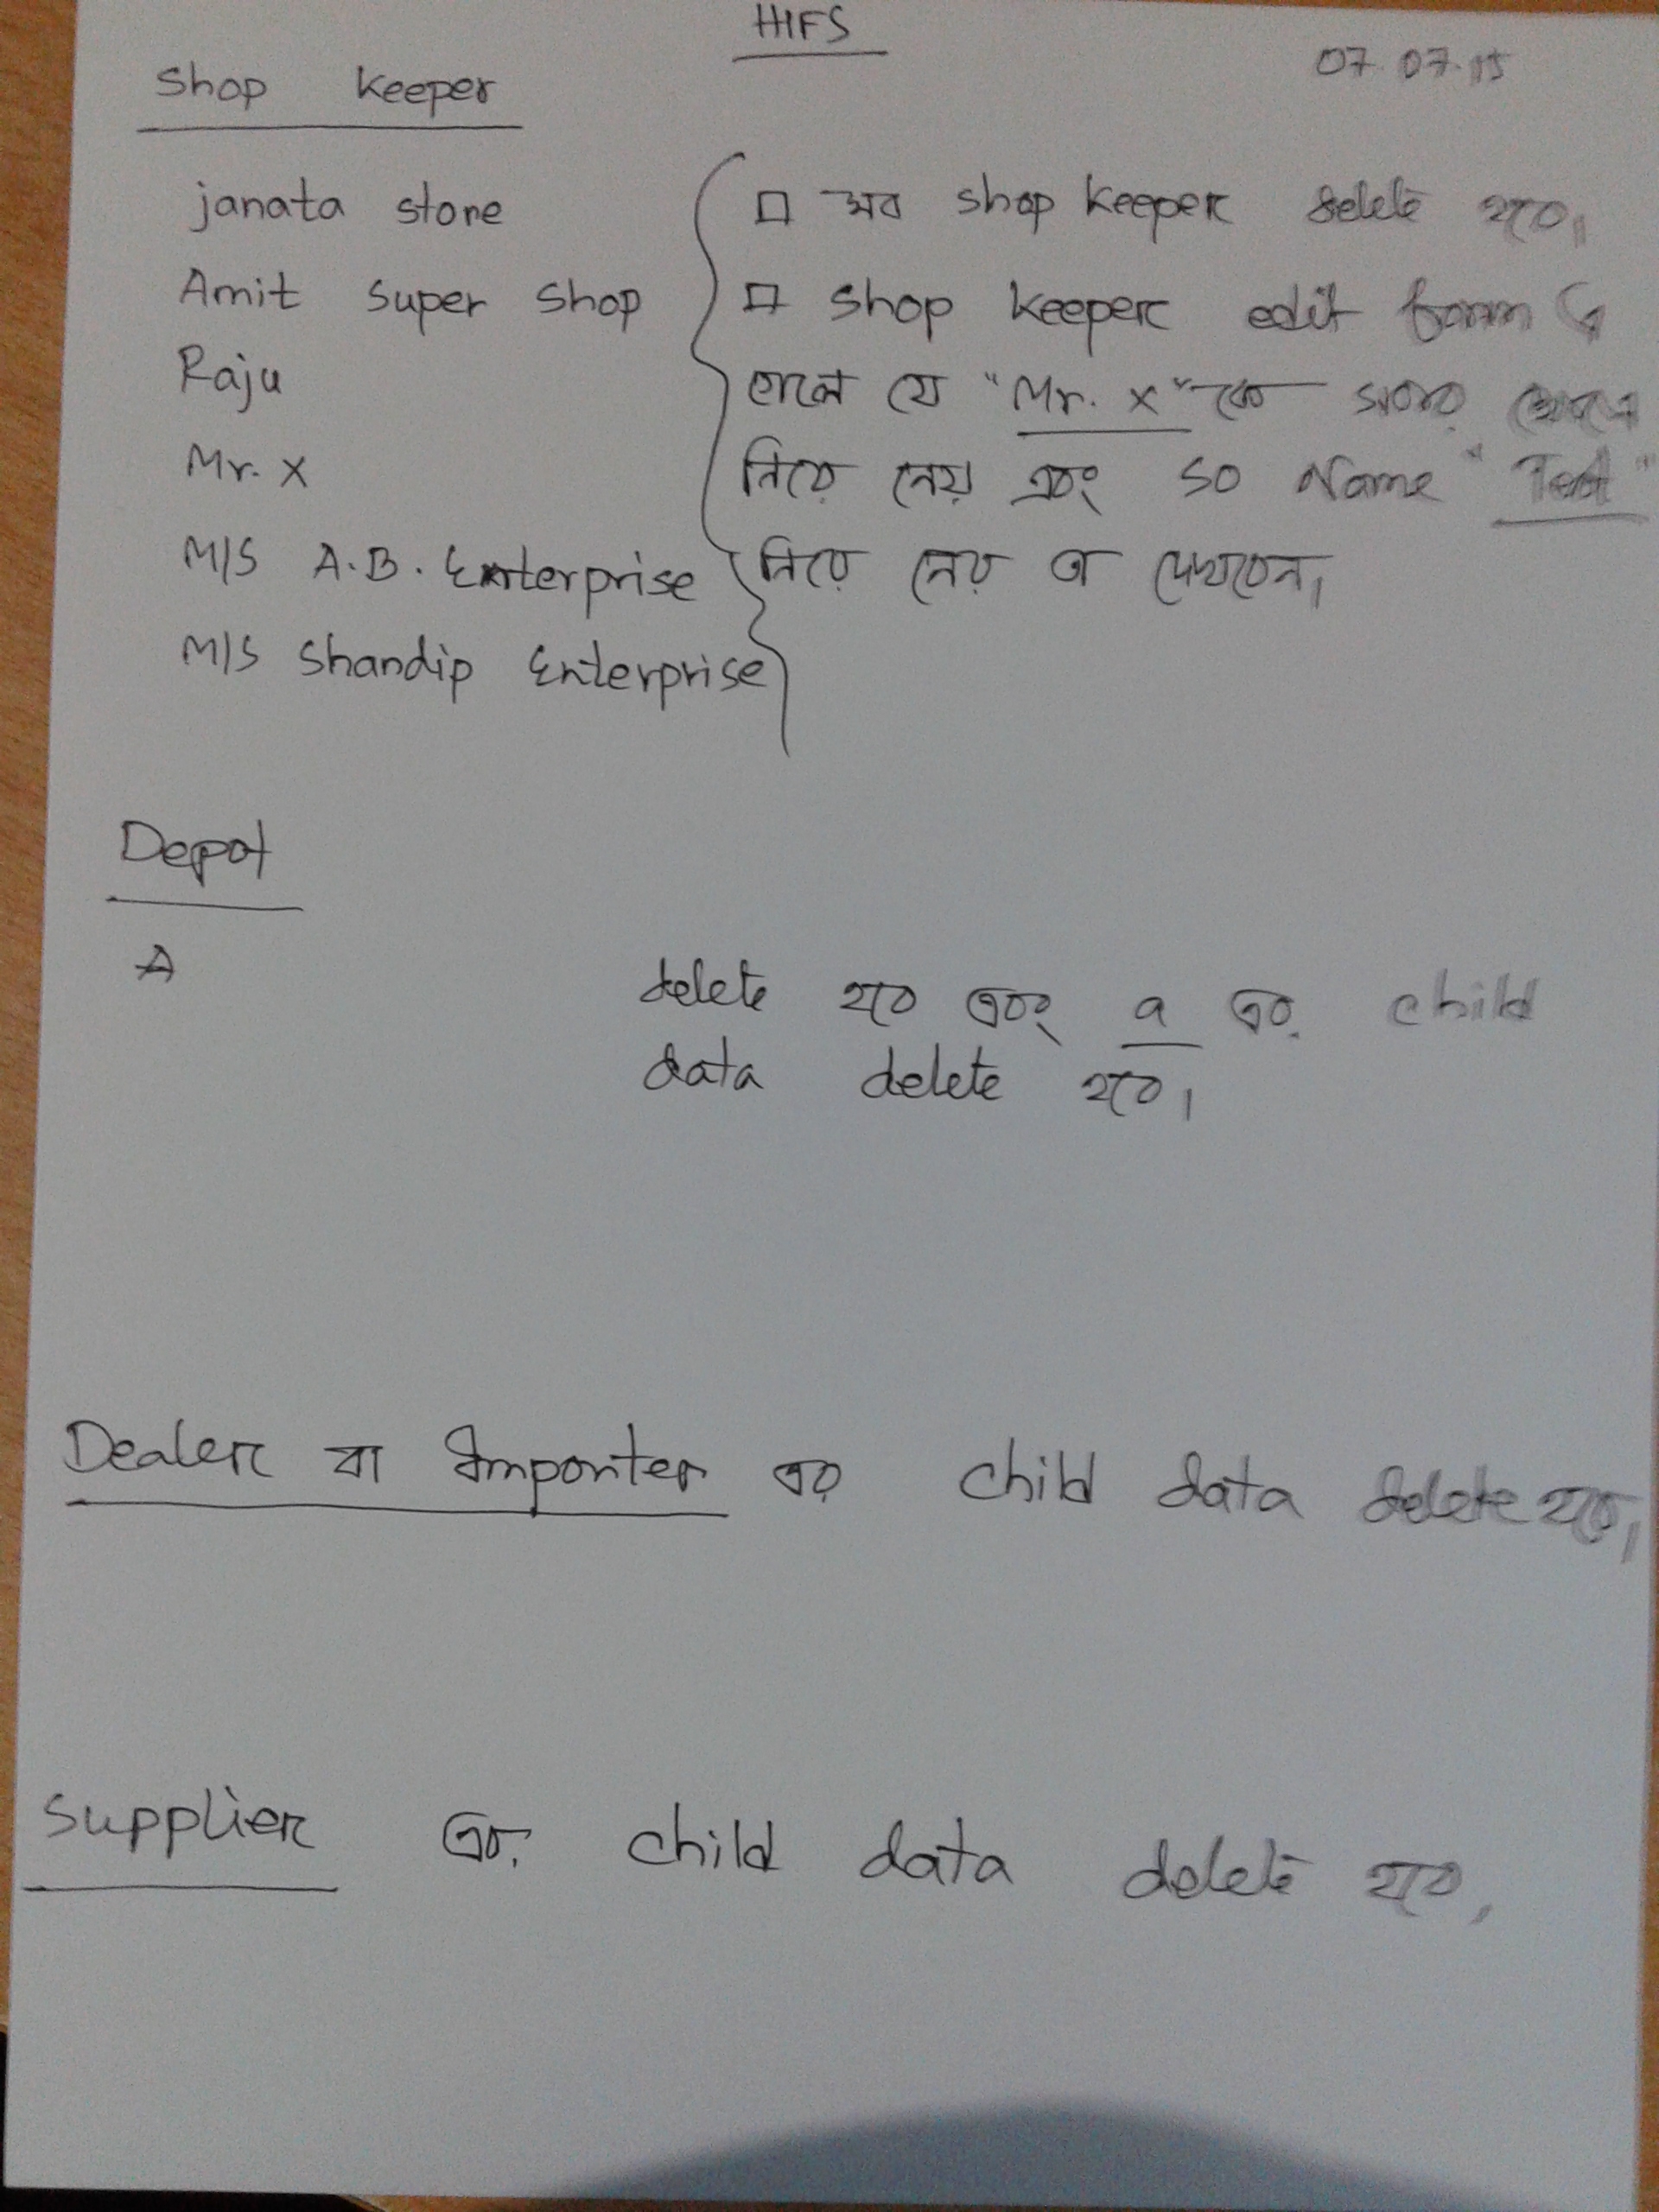 HIFS
07.07.15
Shop Keeper
janata store
Amit Super Shop
Raju
Mr. X
M/S A.B. Enterprise
M/S Shandip Enterprise
□ সব shop keeper delete হবে।
□ Shop keeper edit form এ
গেলে যে "Mr. X" কে
নিয়ে নেয় এবং SO Name "Test"
নিয়ে নেয় তা দেখবেন।
Depot
A
delete হবে এবং a এর child
data delete হবে।
Dealer বা Importer এর child data delete হবে।
Supplier এর child data delete হবে।